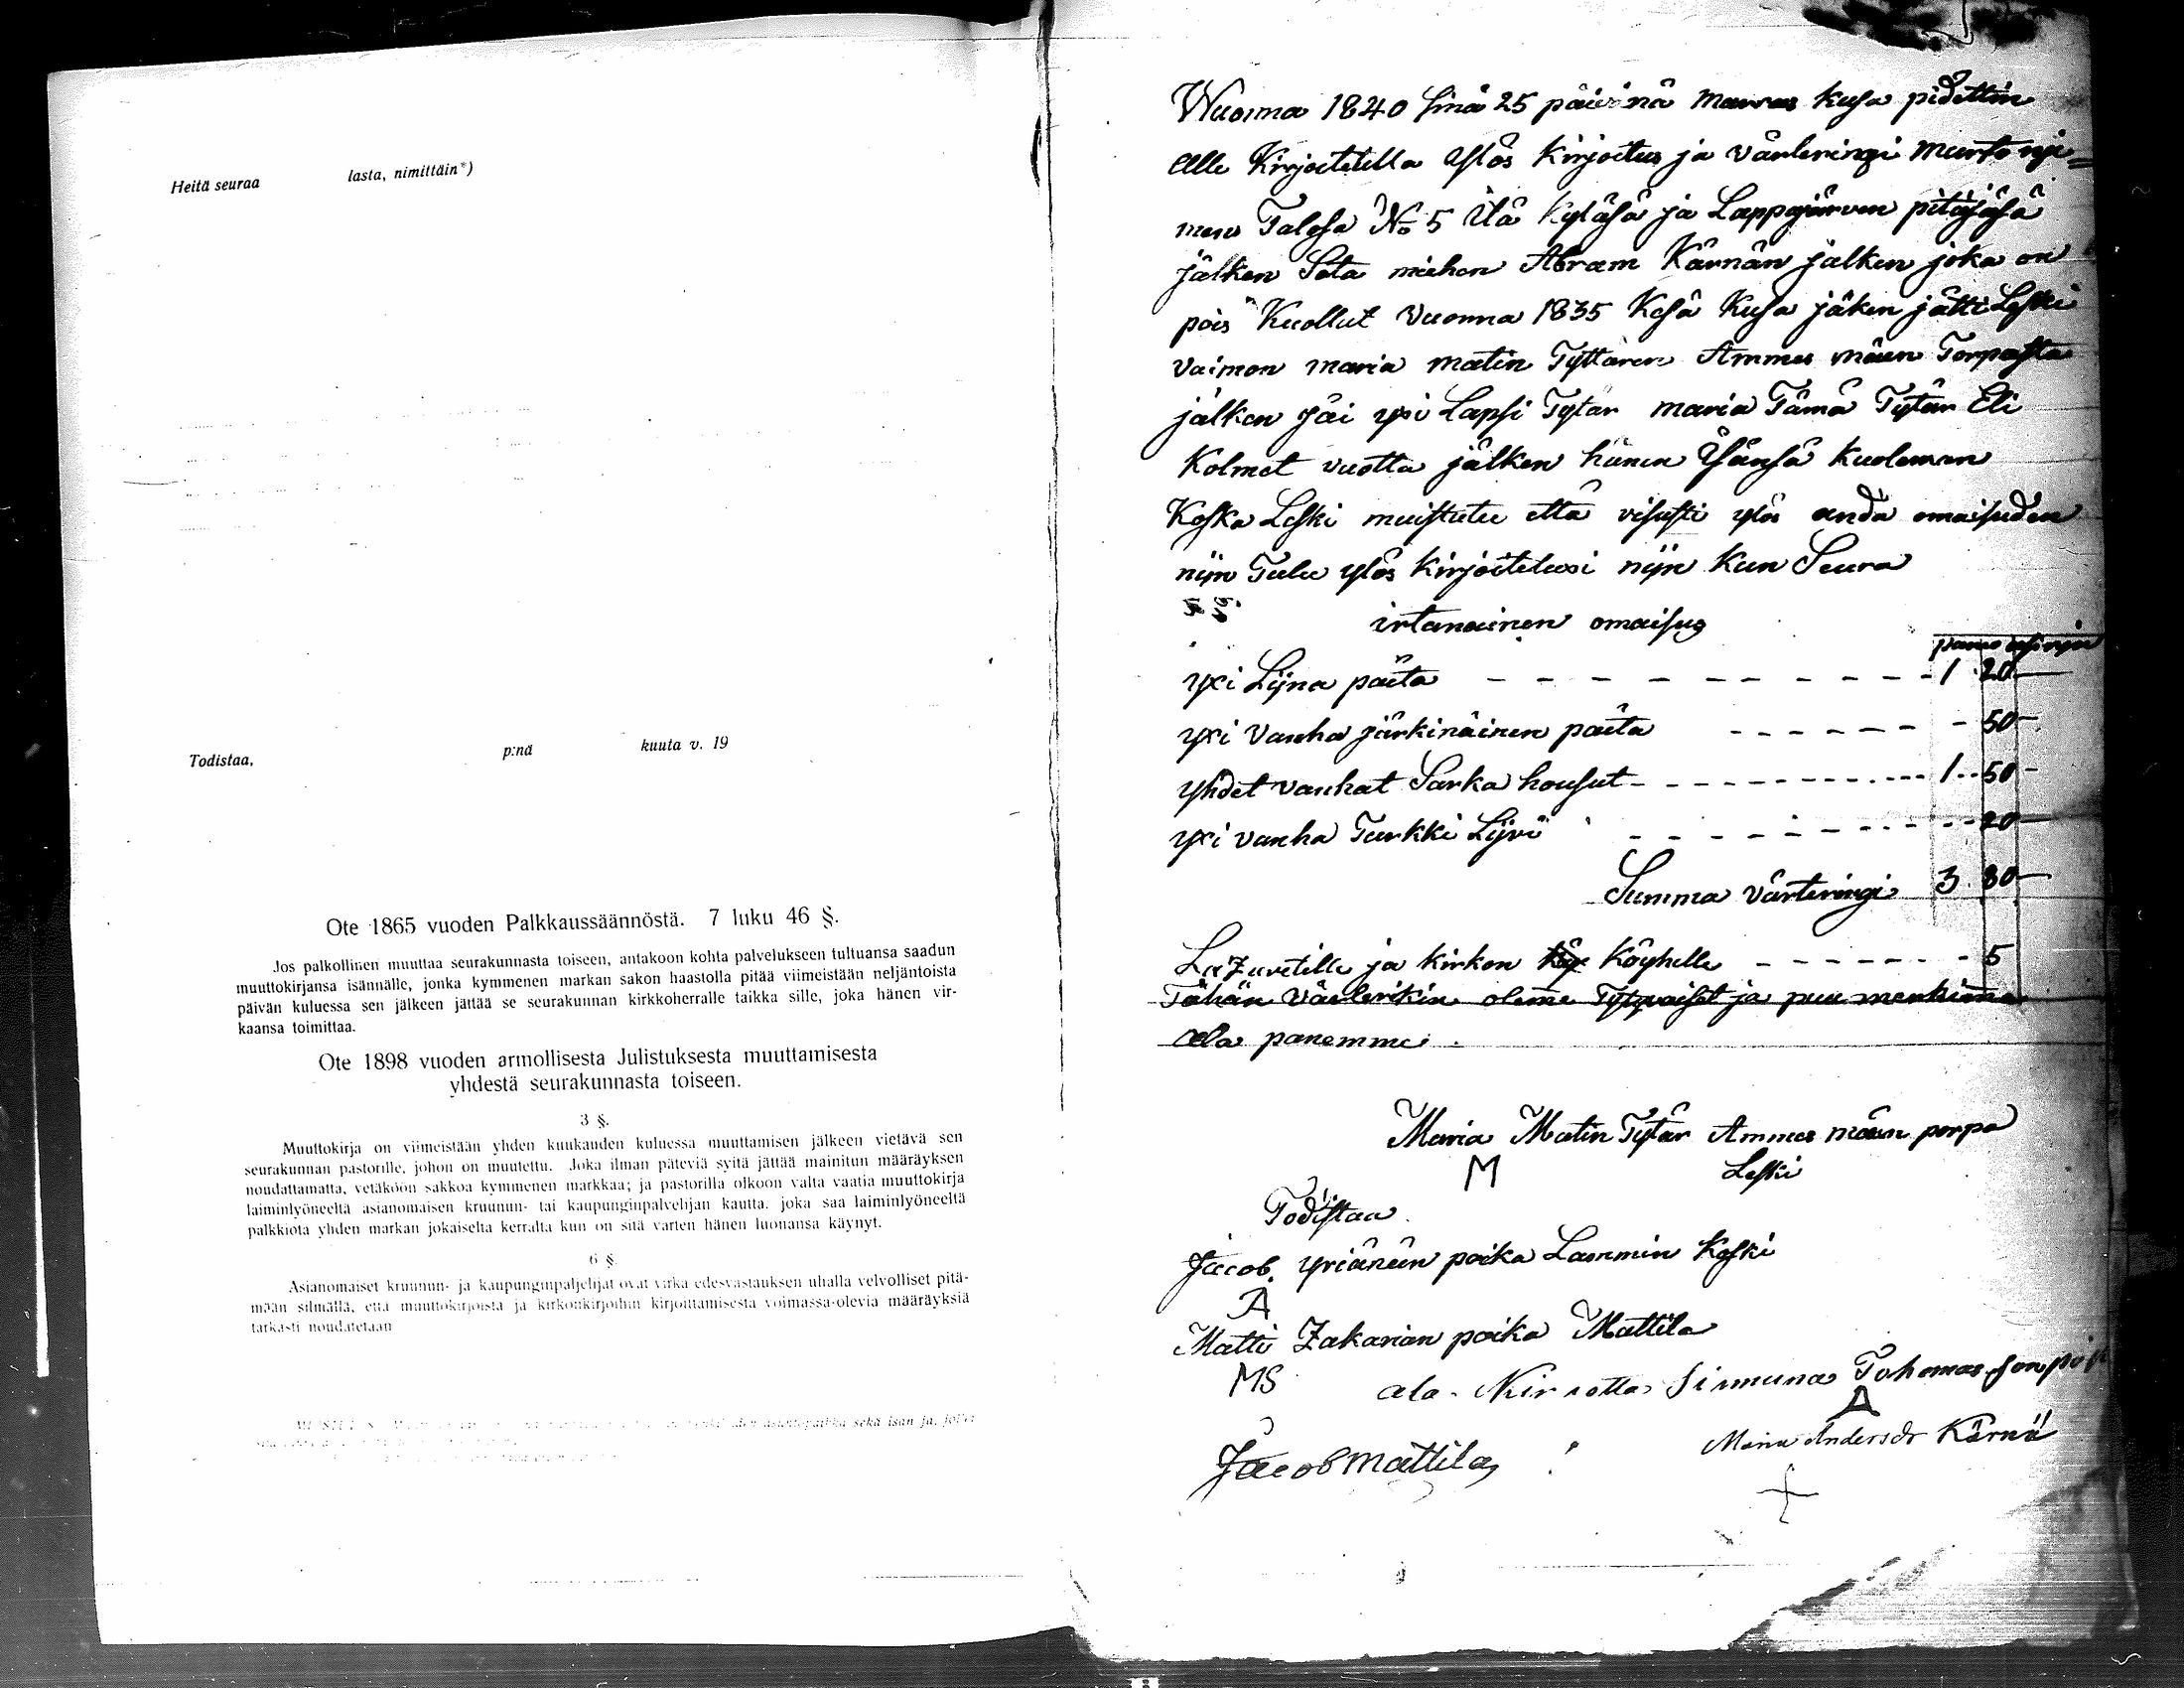 Heitä seuraa lasta, nimittäin*)
Todistaa, p:nä kuuta v. 19
Ote 1865 vuoden Palkkaussäännöstä. 7 luku 46 §.
Jos palkollinen muuttaa seurakunnasta toiseen, antakoon kohta palvelukseen tultuansa saadun
muuttokirjansa isännälle, jonka kymmenen markan sakon haastolla pitää viimeistään neljäntoista
päivän kuluessa sen jälkeen jättää se seurakunnan kirkkoherralle taikka sille, joka hänen vir-
kaansa toimittaa.
Ote 1898 vuoden armollisesta Julistuksesta muuttamisesta
yhdestä seurakunnasta toiseen.
3 §.
Muuttokirja on viimeistään yhden kuukauden kuluessa muuttamisen jälkeen vietävä sen
seurakunnan pastorille, johon on muutettu. Joka ilman päteviä syitä jättää mainitun määräyksen
noudattamatta, vetäköön sakkoa kymmenen markkaa; ja pastorilla olkoon valta vaatia muuttokirja
laiminlyöneeltä asianomaisen kruunun- tai kaupunginpalvelijan kautta, joka saa laiminlyöneeltä
palkkiota yhden markan jokaiselta kerralta kun on sitä varten hänen luonansa käynyt.
6 §.
Asianomaiset kruunun- ja kaupunginpalvelijat ovat virka edesvastauksen uhalla velvolliset pitä-
mään silmällä, että muuttokirjoista ja kirkonkirjoihin kirjoittamisesta voimassa-olevia määräyksiä
tarkasti noudatetaan
sekä isän ja, jollei
Wuonna 1840 sinä 25 päivinä marras kusa pidettin
alle Kirjoitetilla ylös Kirjoitus ja värleringi murto nji=
men Talosa No 5 Itä Kyläsä ja Lappajärven pitäjäsä
jälken Sota miehen Abram Kärnän jälken joka on
pois Kuollut Vuonna 1835 Kesä Kusa jäken jätti Leski
vaimon maria matin Tyttären Ammes mäen Torpasta
jälken jäi yxi Lapsi Tytär maria Tämä Tytär Eli
Kolmet vuotta jälken hänen Isänsä kuoleman
Koska Leski muistutu että visusti ylös anda omaisuden
nijn Tulee ylös kirjoitetuxi nijn Kun Seura
irtanainen omaisus
yxi Lijna päita 1 20
yxi vanha järkinäinen päita 50
yhdet vanhat Sarka housut 1 50
yxi vanha Turkki Lijvi 20
Summa värteringi 3 80
Lazaretille ja kirkon Köyhelle 5
Tähän värlerikin oleme Tytyväiset ja puu merkimme
ala panemme.
Maria Matin Tytär Ammes mäen porpa
M Leski
Todistaa
Jacob Yriäneen poika Lammin Koski
A
Matti Zakarian poika Mattila
MS ala Kirjotta Simuna Tohomas Son
Jacob Mattila
Maria Andersdr Kärnä